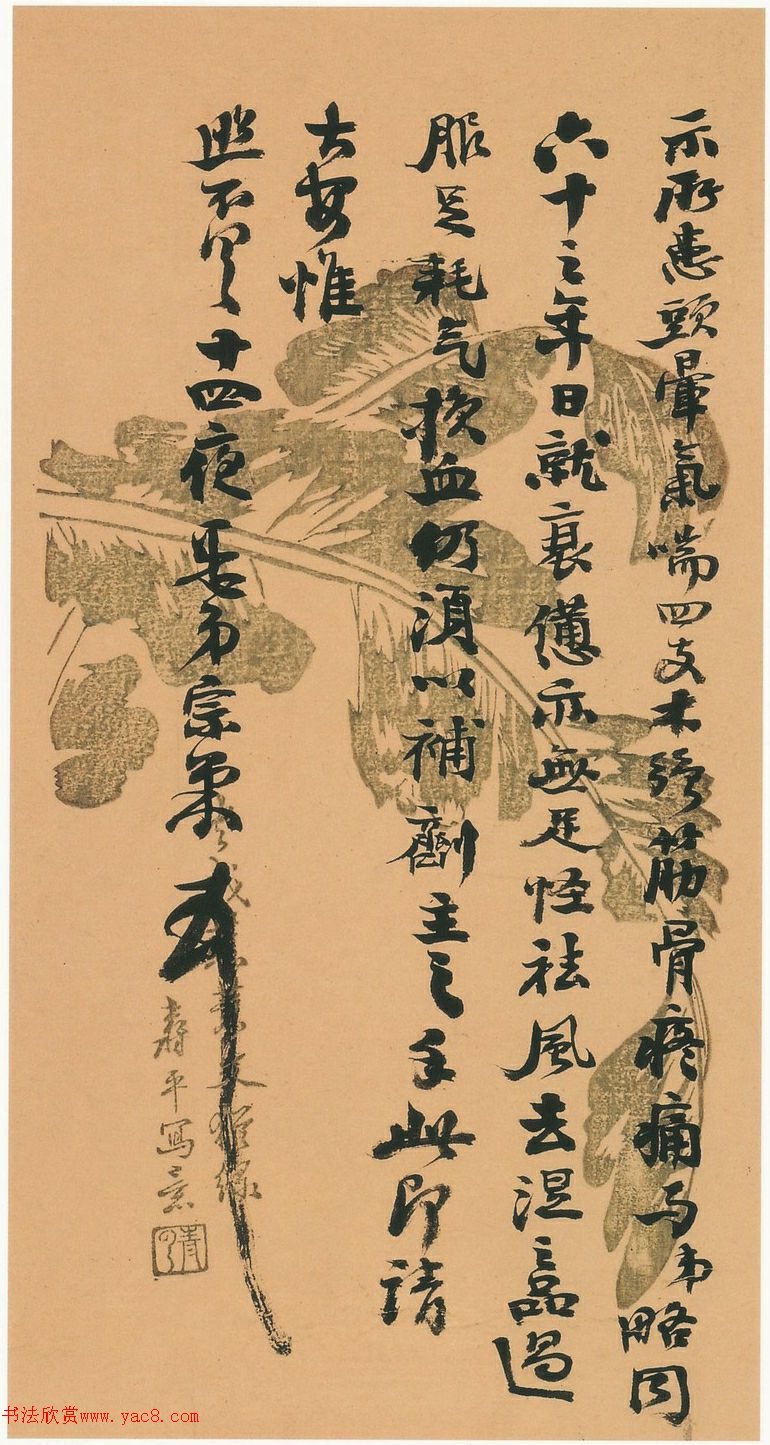 示所患頭暈氣喘四支木強筋骨疼痛与弟略同
六十之年日就衰憊亦無足怪祛風去濕之品過
服足耗气损血仍須以補劑主之手此即請
大安惟
照不具十四夜愚弟宗棠
壽平寫意
书法欣赏www.yac8.com